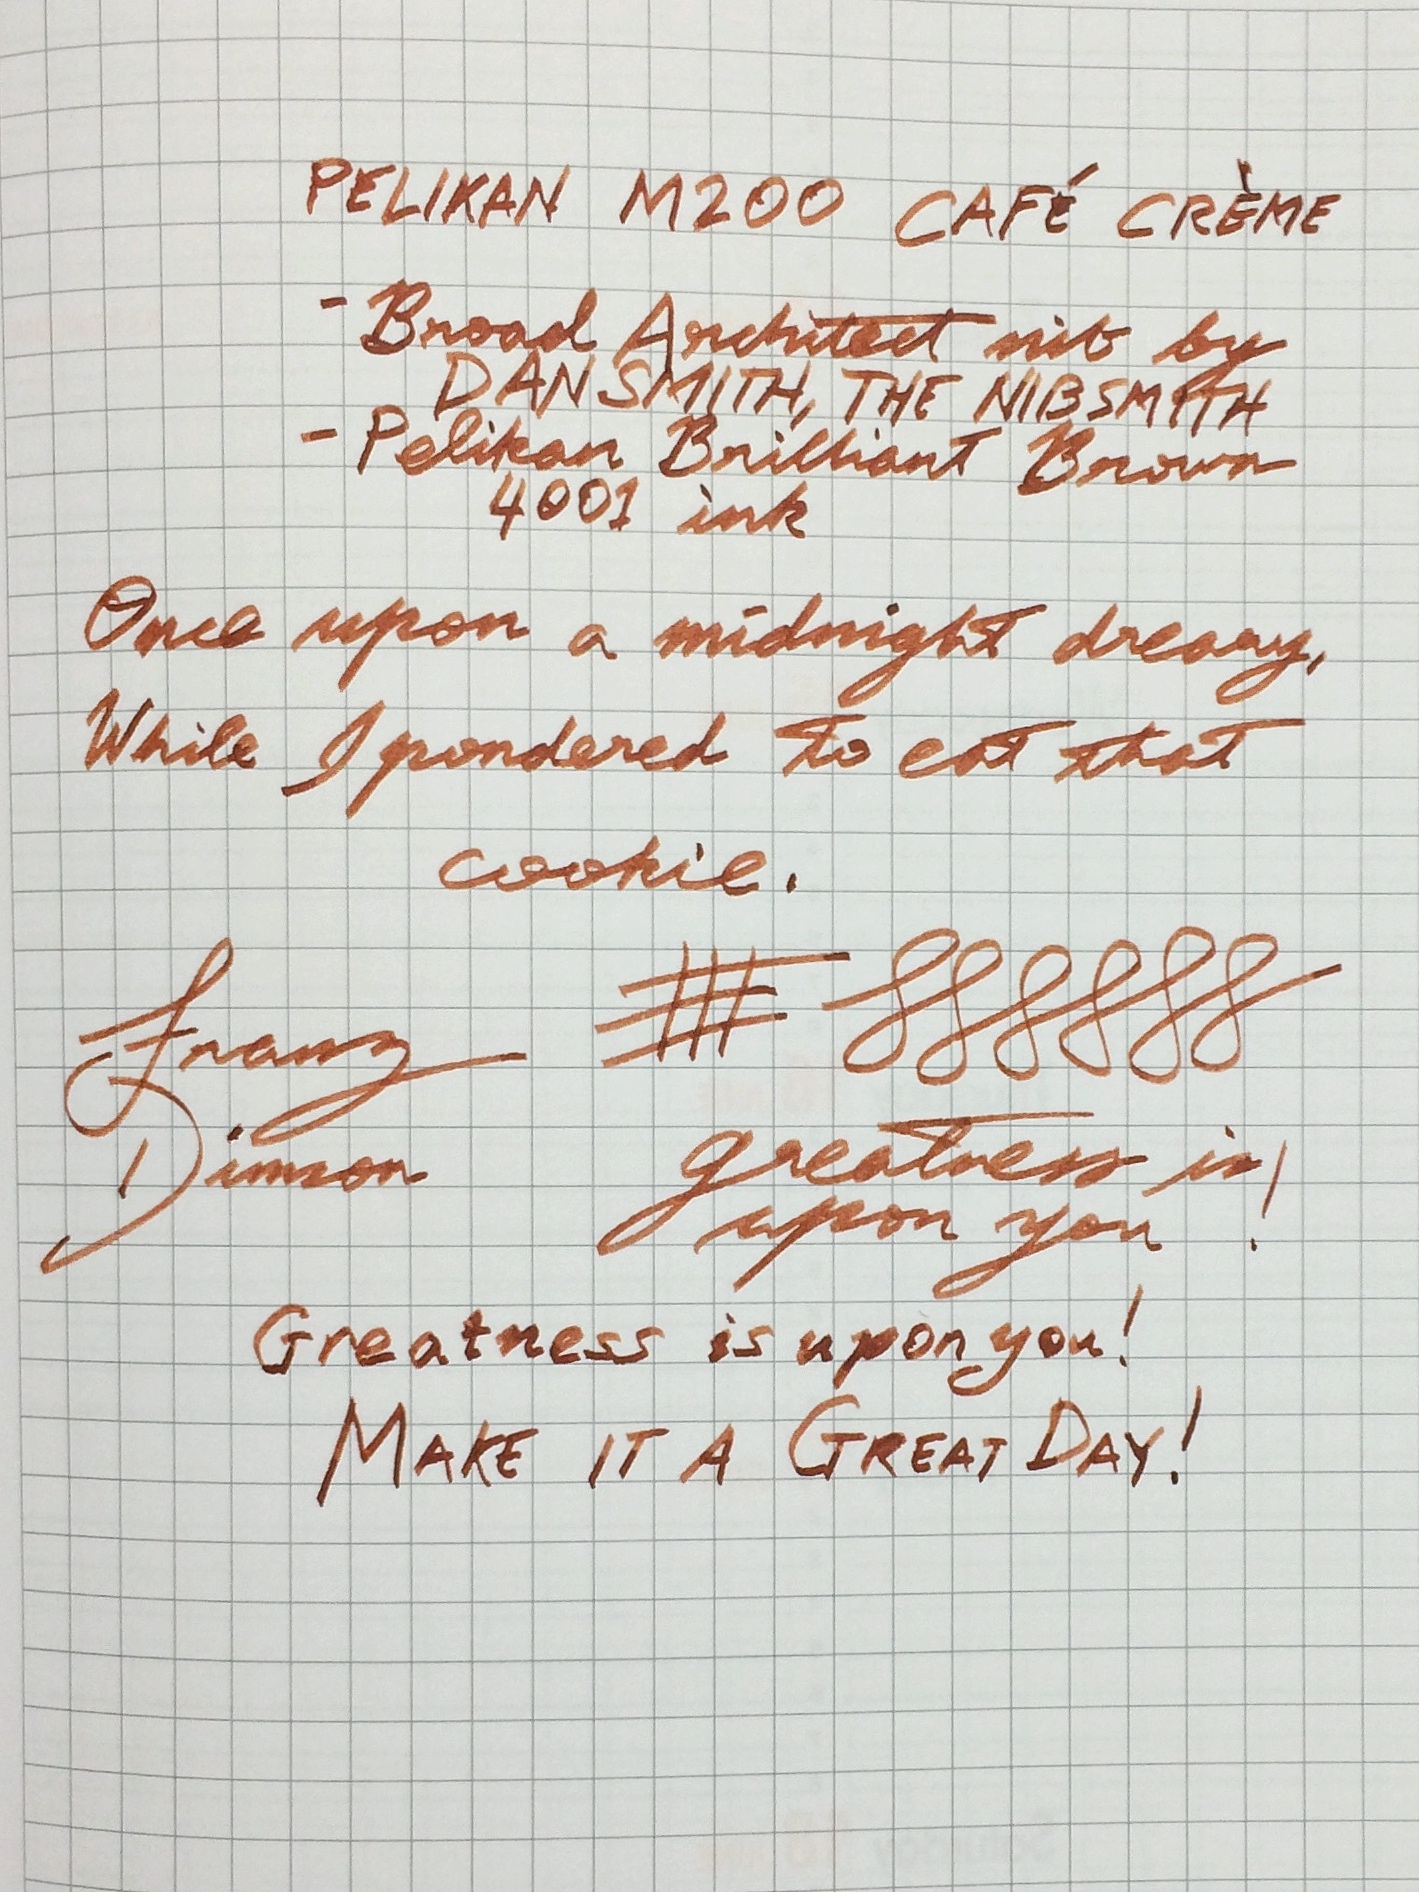 PELIKAN M200 CAFÉ CRÈME
- Broad Architect nib by
DAN SMITH, THE NIBSMITH
- Pelikan Brilliant Brown
4001 ink
Once upon a midnight dreary,
While I pondered to eat that
cookie.
Franz
Dimson
greatness is
upon you!
Greatness is upon you!
MAKE IT A GREAT DAY!